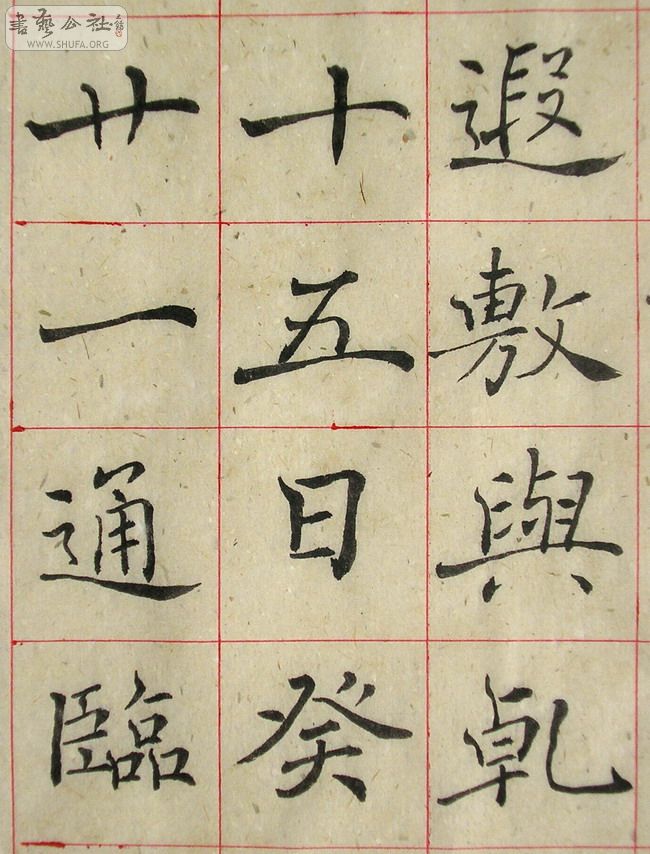 遐敷與乹
十五日癸
廿一通臨
書藝公社
WWW.SHUFA.ORG